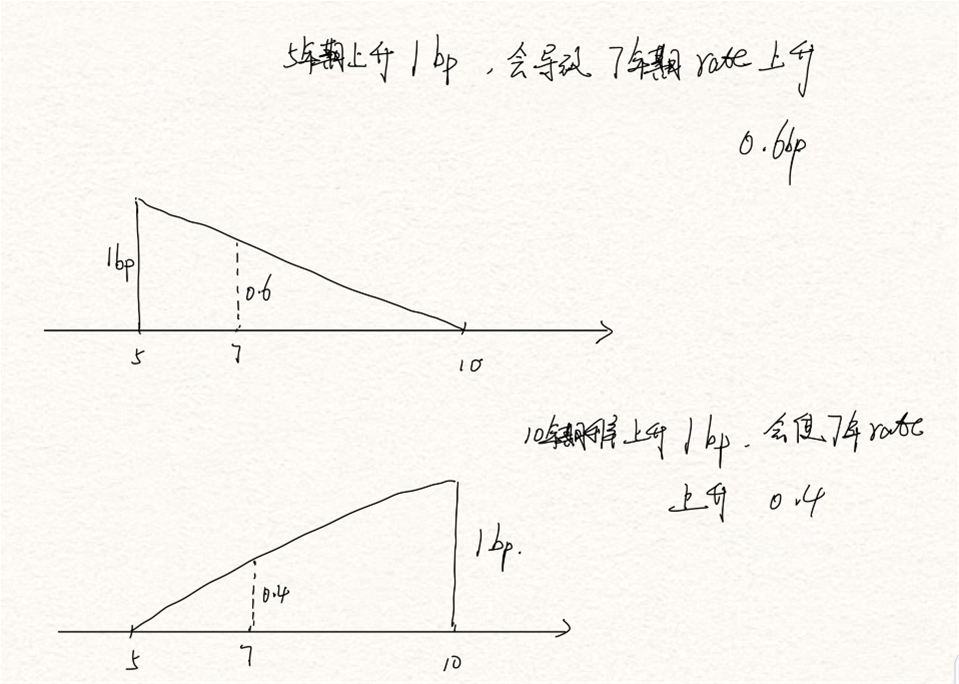 5年期上升1bp，会导致7年期rate上升
0.6bp
1bp
0.6
5
7
10
10年期利率上升1bp．会使7年rate
上升 0.4
1bp.
0.4
5
7
10